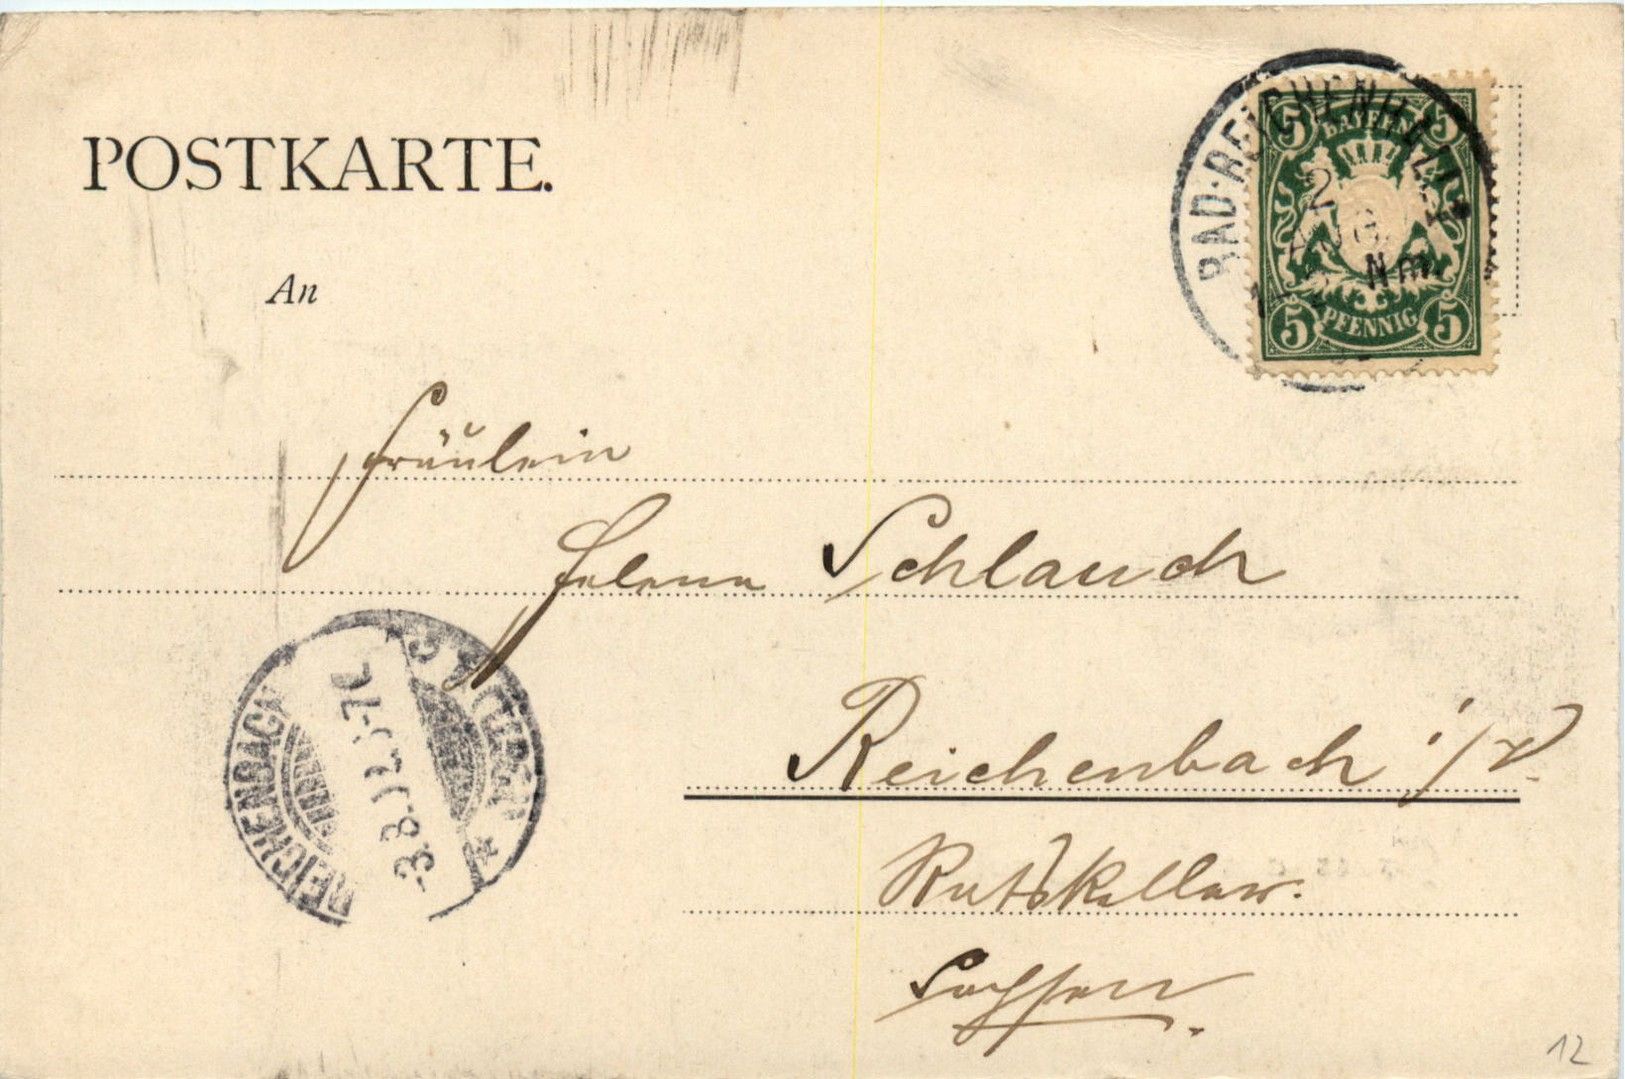 POSTKARTE.
BAD·REICHENHALL
2
AUG.
Nm.
5 BAYERN 5
5 PFENNIG 5
An
Fräulein
Helene Schlauch
Reichenbach i/V.
Ratskeller.
Sachsen
REICHENBACH
-3.8.
12